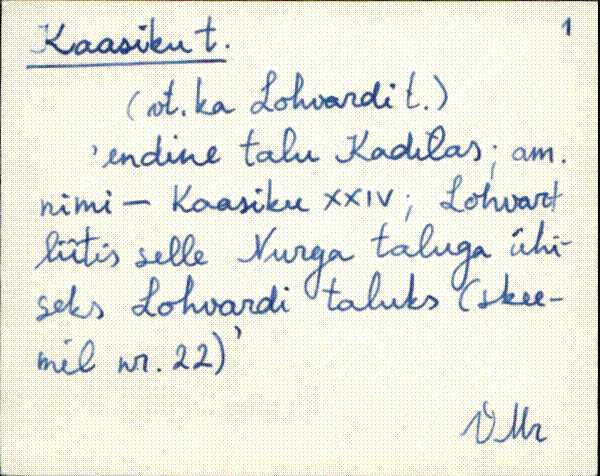 Kaasiku t.
1
(vt. ka Lohvardi t.)
'endine talu Kadilas; am.
nimi — Kaasiku XXIV; Lohvart
liitis selle Nurga taluga ühi-
seks Lohvardi taluks (skee-
mil nr. 22)'
VMr